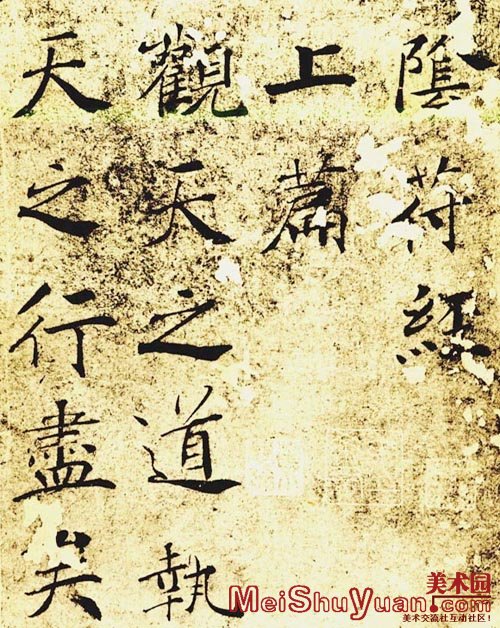 陰符經
上篇
觀天之道執
天之行盡矣
美术园
MeiShuYuan.com
美术交流社互动社区!